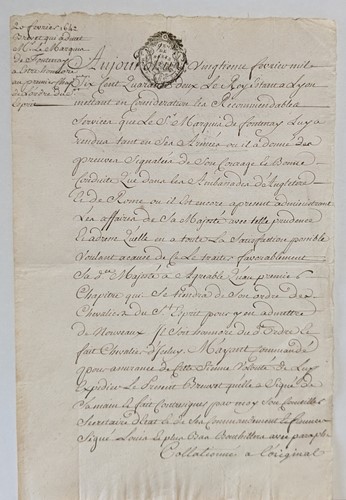 20 février 1642
Brevet qui admet
Mr. Le Marquis
de Fontenay
a Estre
au premier
de l'ordre du St
Esprit
Aujourd'huy vingtieme fevrier mil
Six Cent Quarante deux Le Roy Estant a Lyon
mettant en Consideration les Recommendables
Services que Le Sr. Marquis de fontenay Luy a
rendus tant en Ses Armées ou il a donné des
preuves Signalées de Son Courage et Bonne
Conduite Que dans les Ambassades d'Angleterre
et de Rome ou il est encore a present administrant
Les affaires de Sa Majesté avec telle prudence
et adresse Qu'elle en a toute La Satisfaction possible
Voulant a cause de Ce Le traiter favorablement
Sa dte. Majesté a Agreable Qu'au premier
Chapitre qui Se tiendra de Son ordre des
Chevaliers du St. Esprit pour y en admettre
de Nouveaux Il Soit honoré du dt. ordre et
fait Chevalier d'iceluy M'ayant Commandé
pour assurance de Cette Sienne Volonté de Luy
expedier Le present Brevet qu'elle a Signé de
Sa main et fait Contresigner par moy Son Conseiller
Secretaire d'Etat et de Ses Commandements et finances
Signé Louis Et plus bas Bouthillier avec paraphe
Collationné a l'original